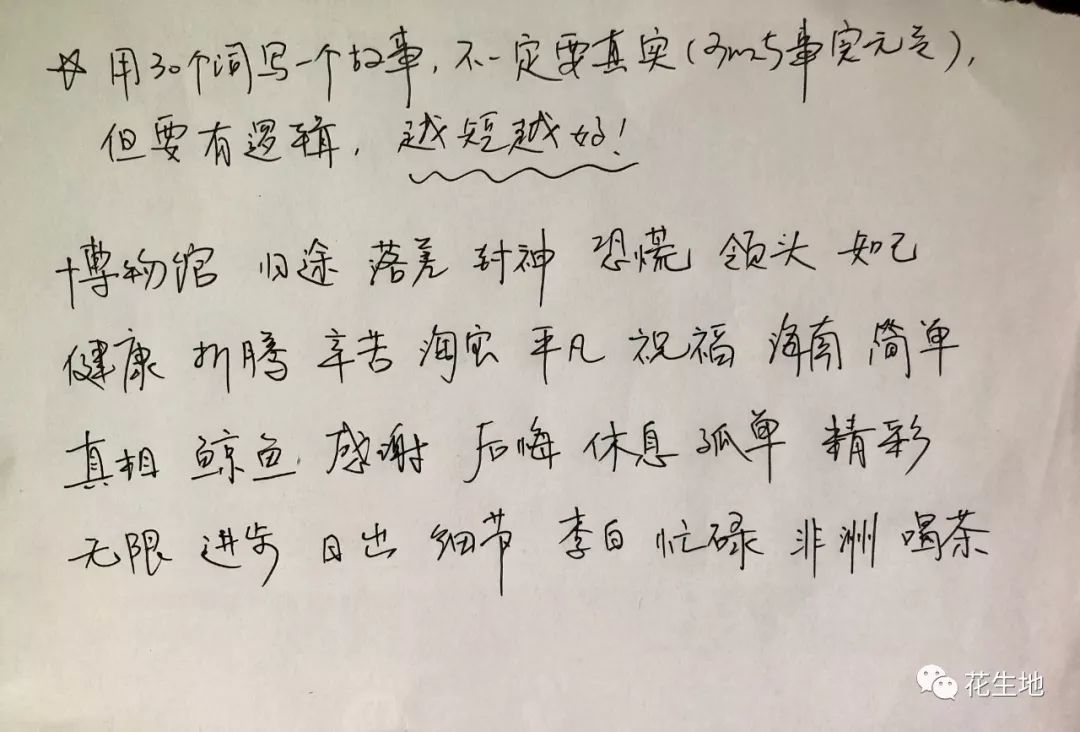 ☆ 用30个词写一个故事,不一定要真实(可以与事实无关),
但要有逻辑,越短越好!
博物馆 归途 落差 封神 恐慌 领头 知己
健康 折腾 辛苦 淘宝 平凡 祝福 海南 简单
真相 鲸鱼 感谢 后悔 休息 孤单 精彩
无限 进步 日出 细节 李白 忙碌 非洲 喝茶
花生地